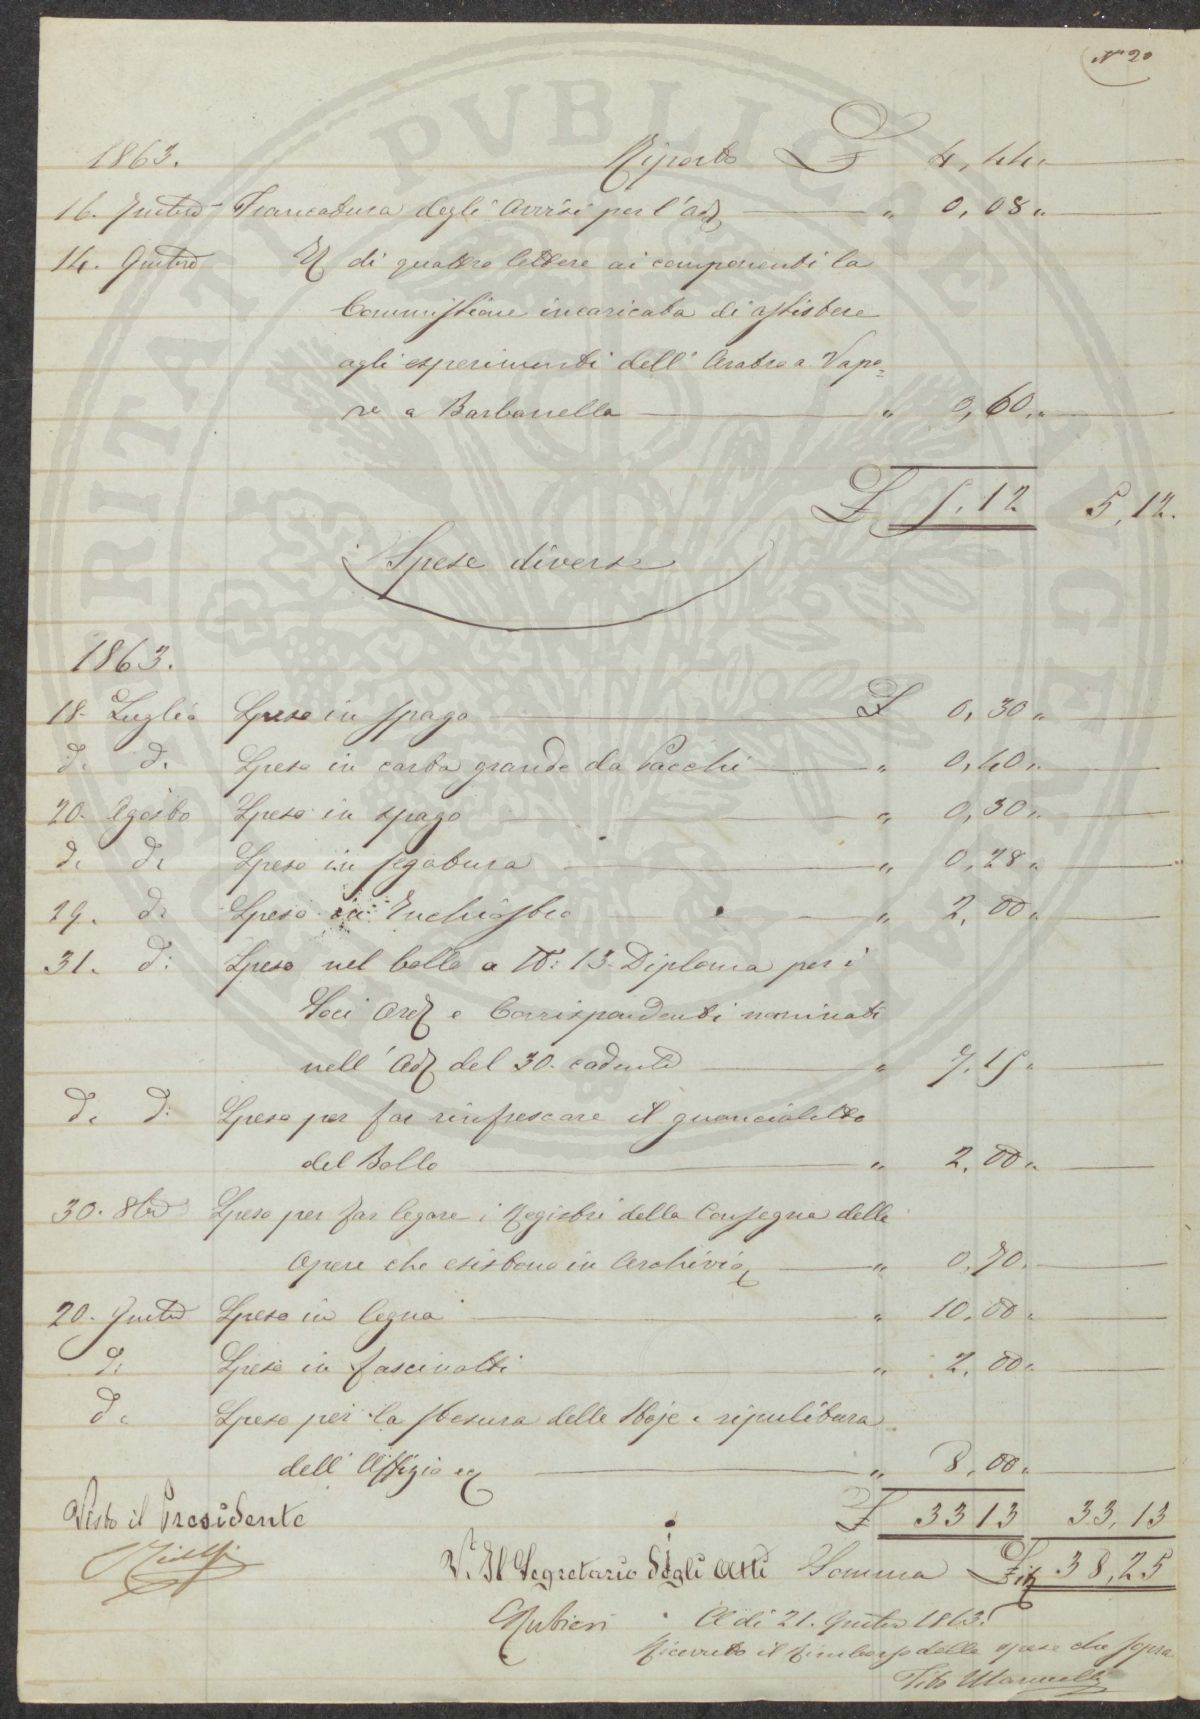 N° 20
1863. Riporto £ 4,44 „
16. Settbre Francatura degli Avvisi per l'ad. „ 0,08 „
14. di quattro lettere ai componenti la
Commissione incaricata di assistere
agli esperimenti dell'Aratro a Vapo=
re a Barbanella „ 0,60 „
£ 5,12 5,12.
Spese diverse
1863.
18. Luglio Spese in spago £ 0,30 „
d. d. Spese in carta grande da Pacchi „ 0,40 „
20. Agosto Spese in spago „ 0,30 „
d. d. Spese in segatura „ 0,28 „
29. d. Spese in Inchiostro „ 2,00 „
31. d: Spese nel bollo a N: 13. Diploma per i
Soci Ord. e Corrispondenti nominati
nell'Ad. del 30. cadente „ 7,15 „
d. d: Spese per far rinfrescare il guancialetto
del Bollo „ 2,00 „
30. 8bre Spese per far legare i Registri della Consegna delle
Opere che esistono in Archivio „ 0,70 „
20. Spese in legna „ 10,00 „
d. Spese in fascinotti „ 2,00 „
d. Spese per la stesura delle Stoje e ripulitura
dell'Uffizio ec. „ 8,00 „
£ 33 13 33,13
Visto il Presidente
V. Il Segretario degli Atti Somma £it 38,25
Rubieri A dì 21. 1863.
Ricevuto il Rimborso delle spese che sopra
Tito
PUBLICAE